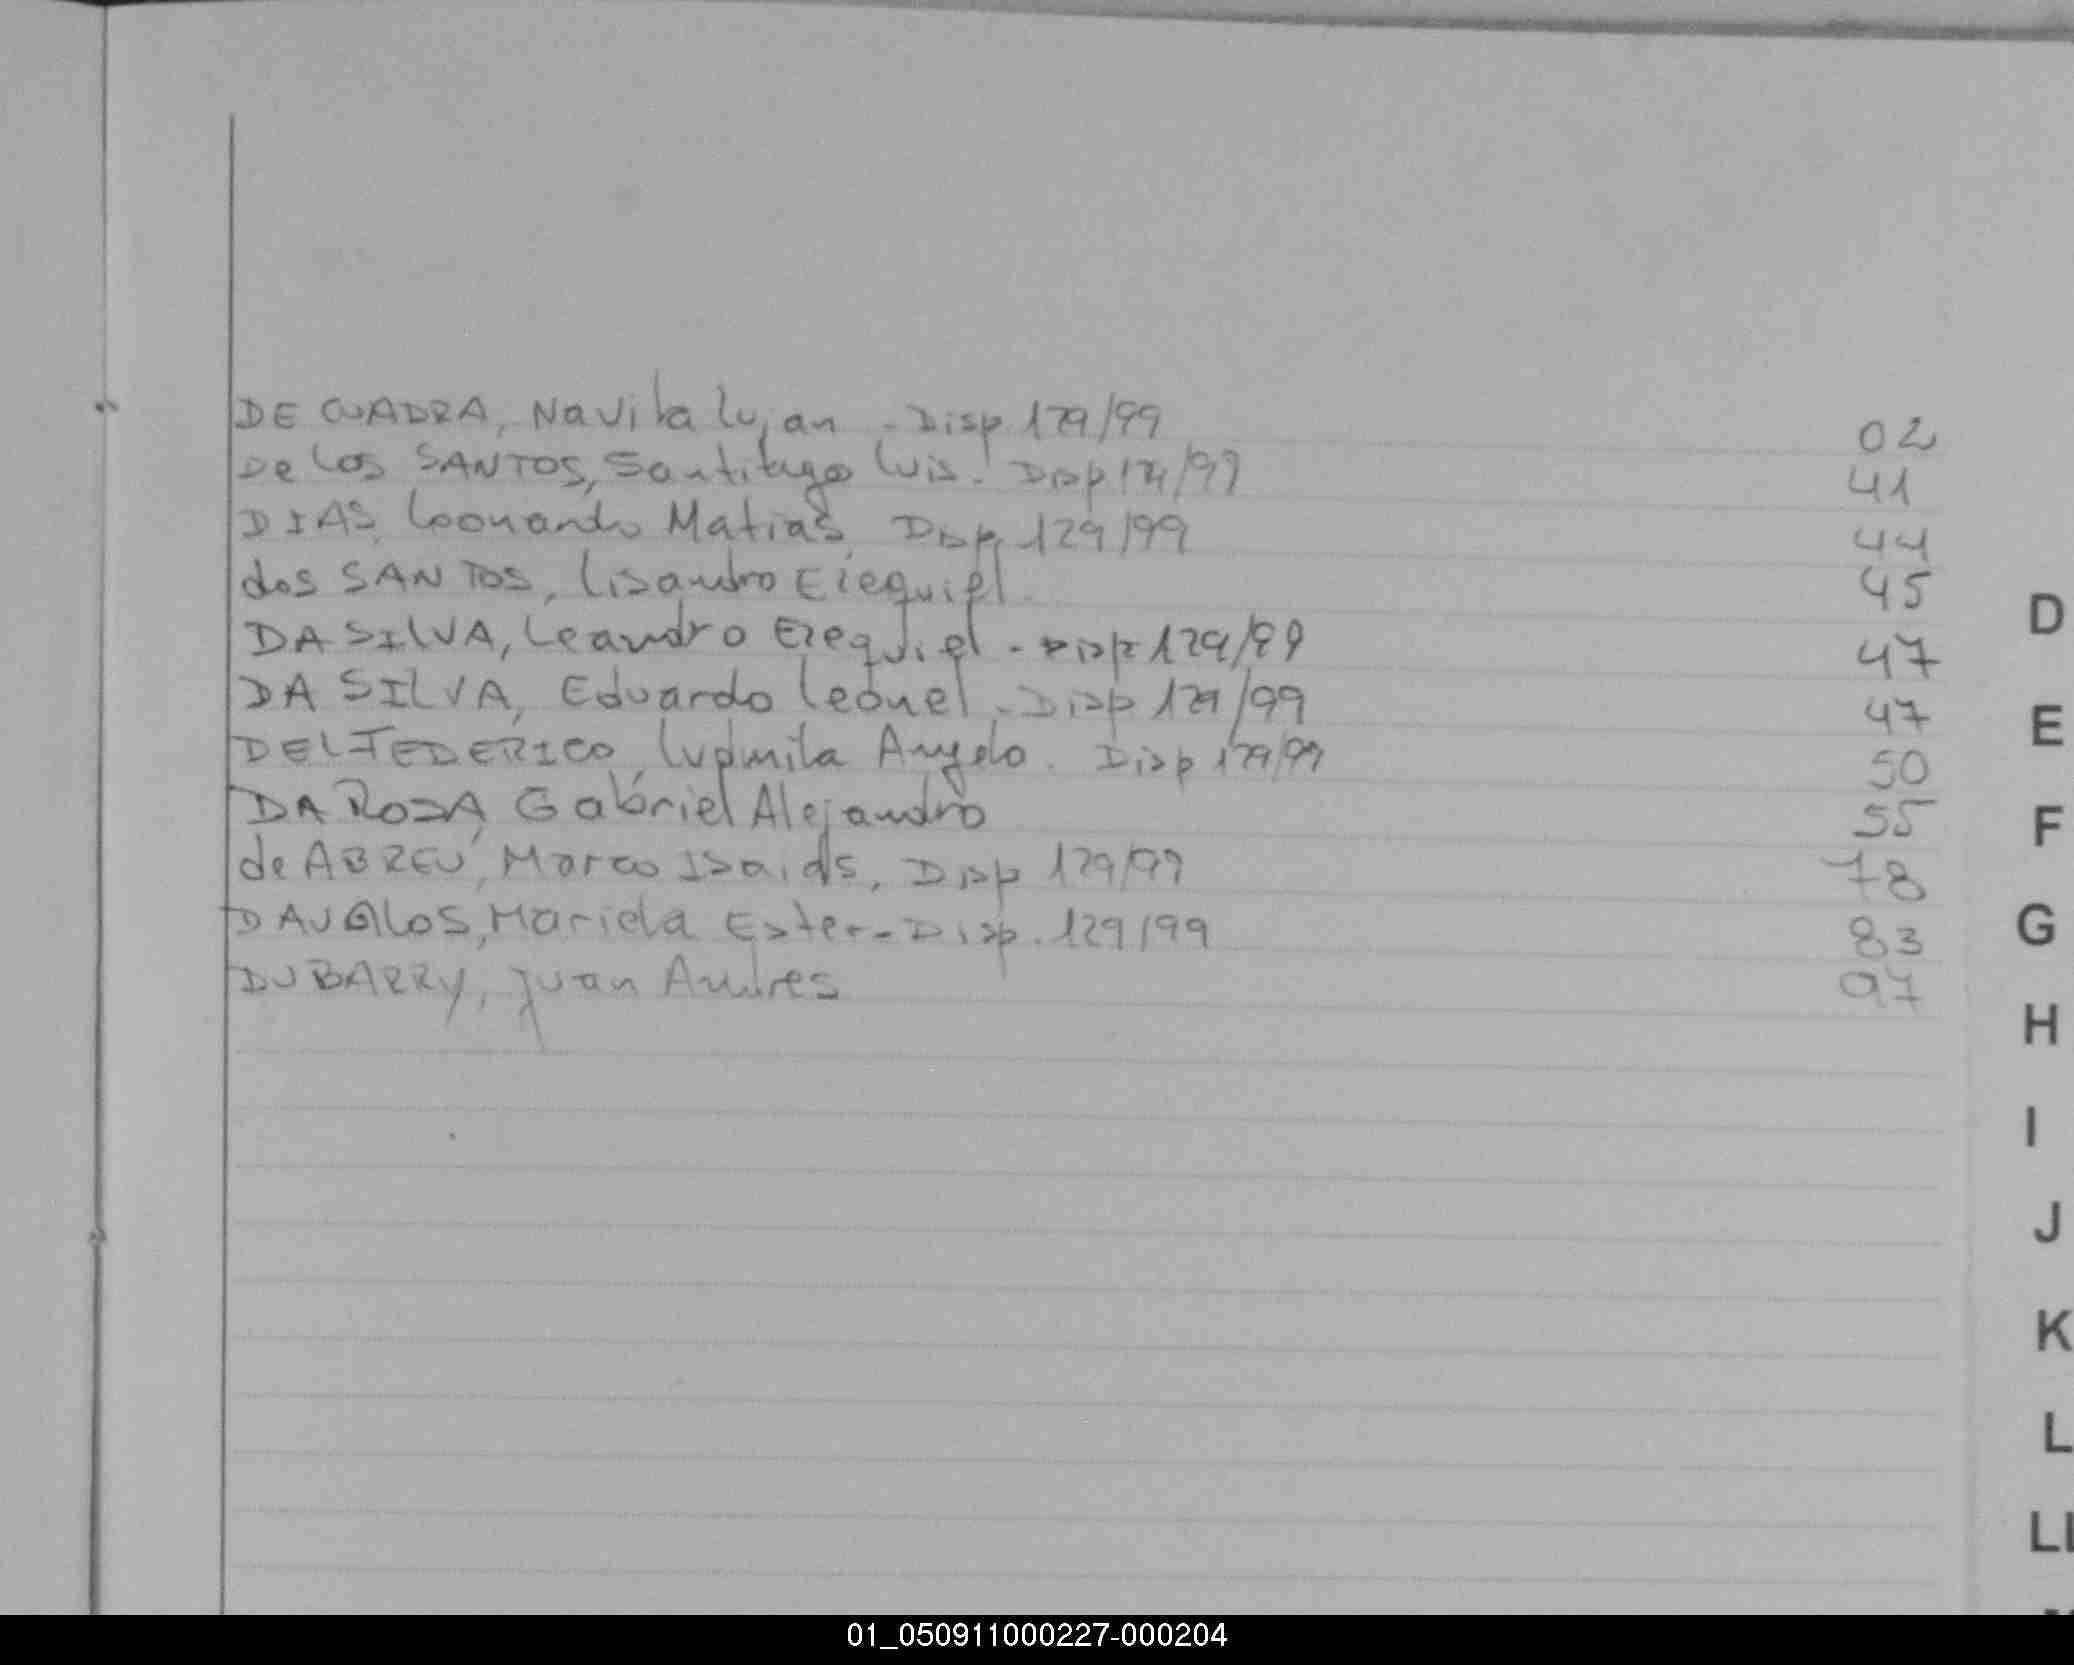 DE CUADRA, Navila lujan - Disp 129/99 02
De los SANTOS, Santitago luis. Disp 129/99 41
DIAS, Leonardo Matias, Disp 129/99 44
dos SANTOS, Lisandro Ezequiel 45
DA SILVA, Leandro Ezequiel - Disp 129/99 47
DA SILVA, Eduardo Leonel - Disp 129/99 47
DELFEDERICO, ludmila Angelo. Disp 129/99 50
DA ROSA, Gabriel Alejandro 55
de ABREU, Marco Isaids, Disp 129/99 78
DAVALOS, Mariela Ester - Disp. 129/99 83
DUBARRY, Juan Andres 97
D
E
F
G
H
I
J
K
L
LL
01_050911000227-000204